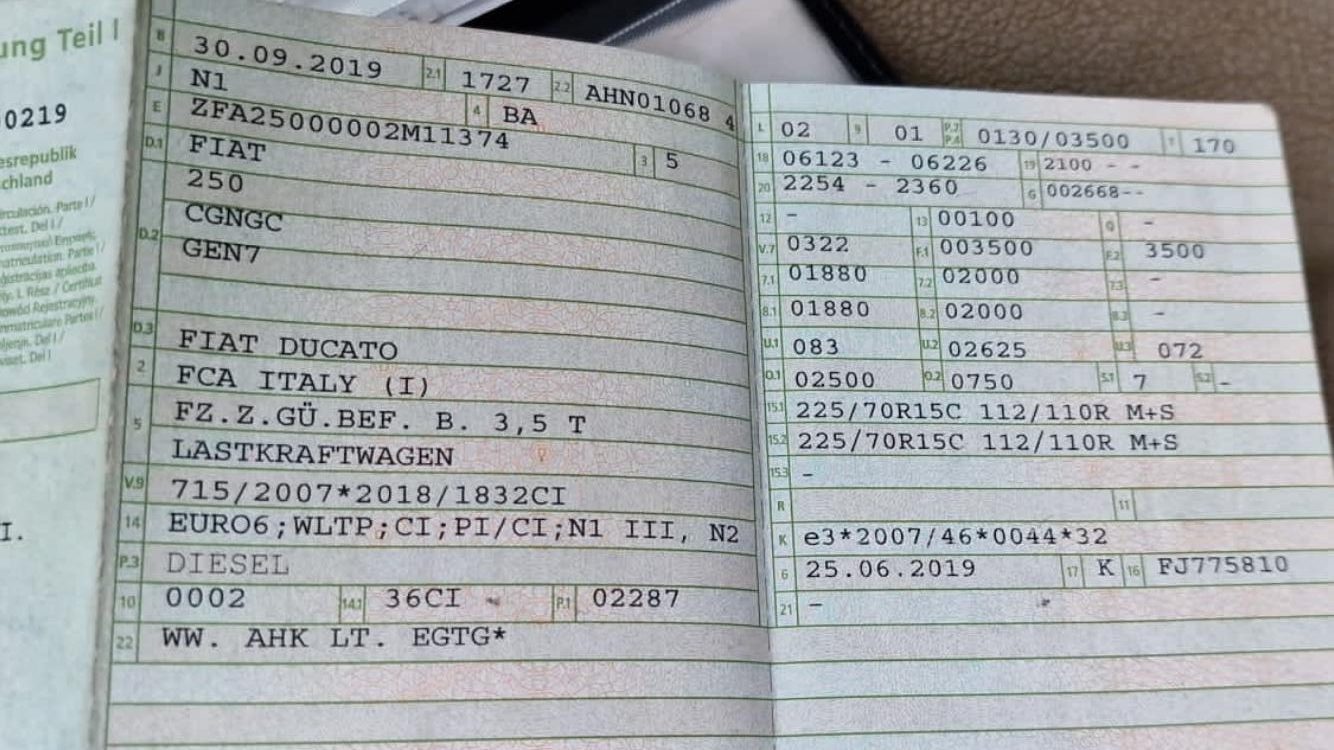 ung Teil I
0219
esrepublik
chland
I.
B 30.09.2019 2.1 1727 2.2 AHN01068 4
J N1 4 BA
E ZFA25000002M11374 3 5
D.1 FIAT
D.2 250
CGNGC
GEN7
D.3 FIAT DUCATO
2 FCA ITALY (I)
5 FZ.Z.GÜ.BEF. B. 3,5 T
LASTKRAFTWAGEN
V.9 715/2007*2018/1832CI
14 EURO6;WLTP;CI;PI/CI;N1 III, N2
P.3 DIESEL
10 0002 14.1 36CI - P.1 02287
22 WW. AHK LT. EGTG*
L 02 9 01 P.2 P.4 0130/03500 T 170
18 06123 - 06226 19 2100 - -
20 2254 - 2360 G 002668--
12 - 13 00100 Q -
V.7 0322 F.1 003500 F.2 3500
7.1 01880 7.2 02000 7.3 -
8.1 01880 8.2 02000 8.3 -
U.1 083 U.2 02625 U.3 072
O.1 02500 O.2 0750 S.1 7 S.2 -
15.1 225/70R15C 112/110R M+S
15.2 225/70R15C 112/110R M+S
15.3 -
R 11
K e3*2007/46*0044*32
6 25.06.2019 17 K 16 FJ775810
21 -